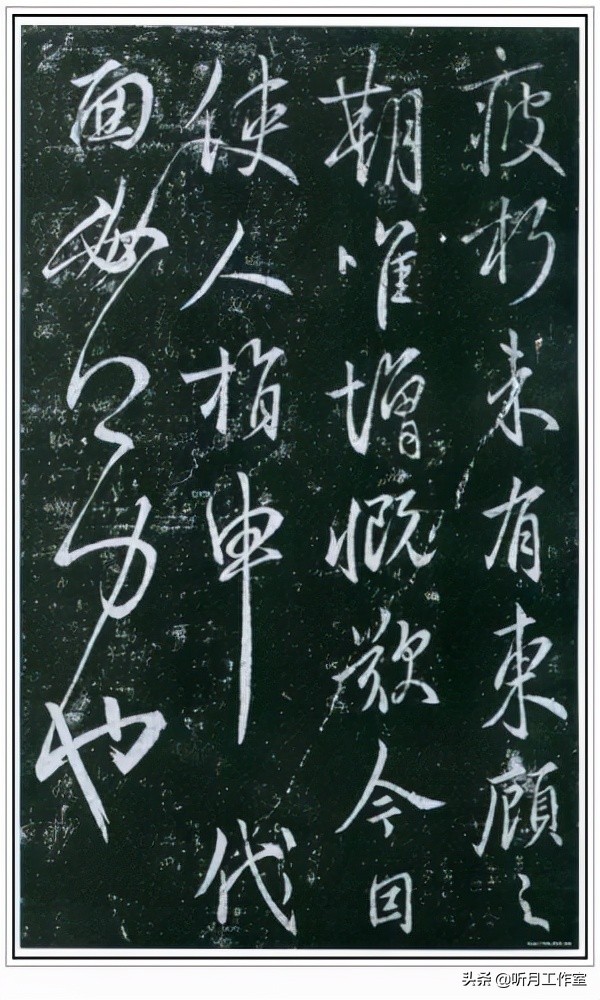 疲朽未有東顧之
期唯增慨歎今因
使人指申代
面也
头条 @听月工作室